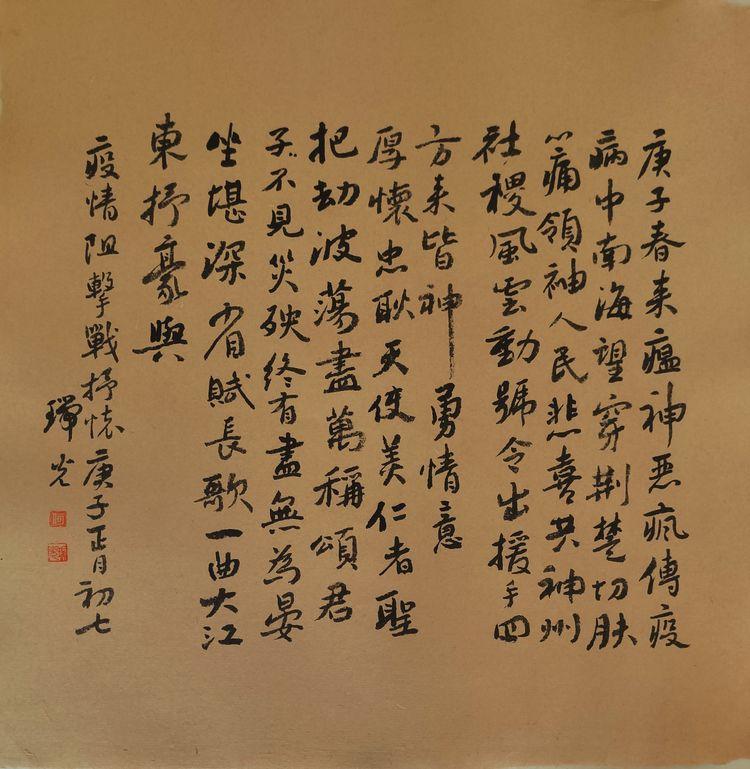 庚子春来瘟神恶疯傳疫
病中南海望穿荆楚切肤
心痛領袖人民悲喜共神州
社稷風雲動號令出援手四
方来皆神勇情意
厚懷忠耿天使美仁者聖
把劫波蕩盡萬稱頌君
子不見災殃終有盡無為晏
坐堪深省賦長歌一曲大江
東抒豪興
疫情阻擊戰抒懷庚子正月初七
瑞光